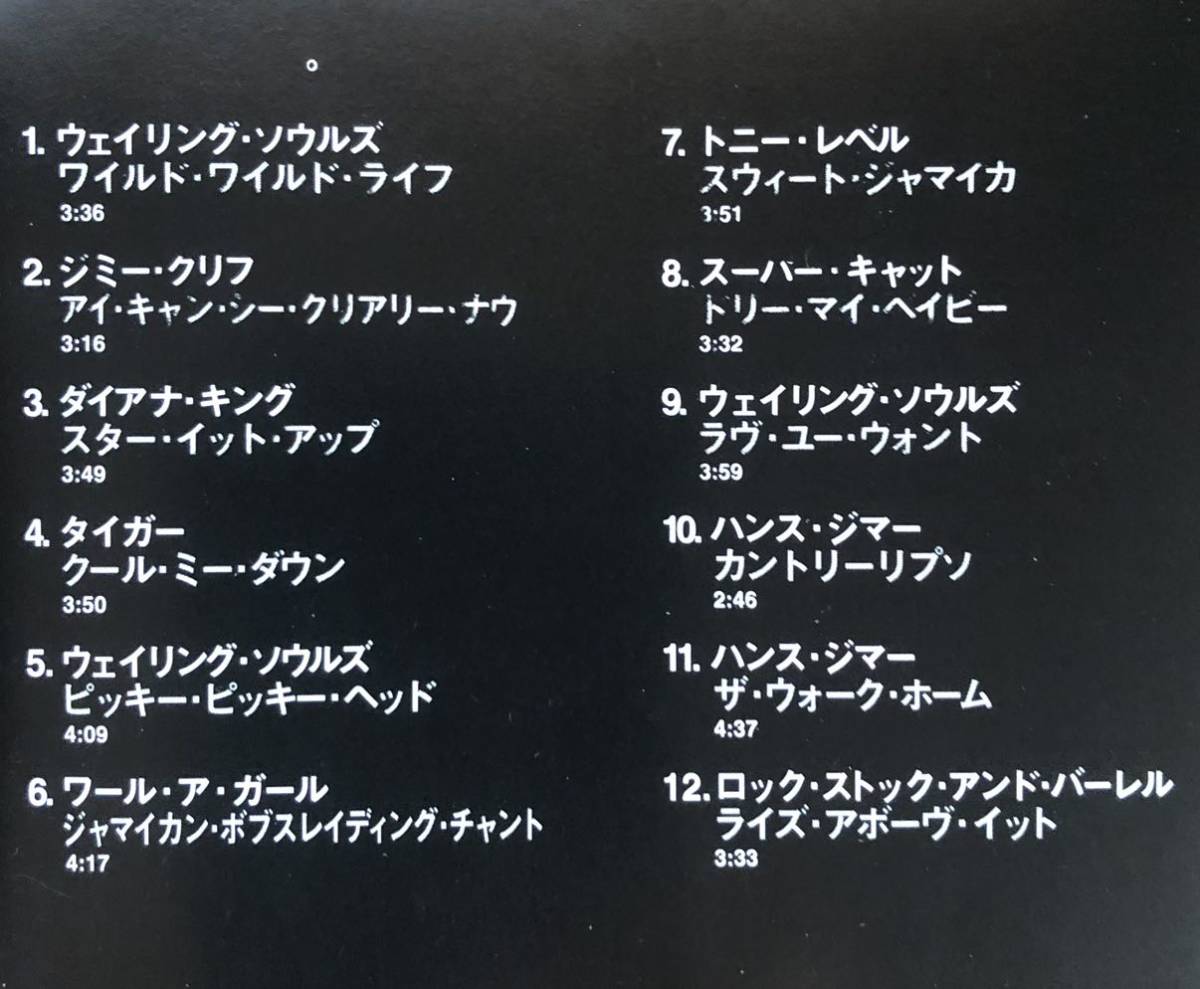 1. ウェイリング・ソウルズ
ワイルド・ワイルド・ライフ
3:36
2. ジミー・クリフ
アイ・キャン・シー・クリアリー・ナウ
3:16
3. ダイアナ・キング
スター・イット・アップ
3:49
4. タイガー
クール・ミー・ダウン
3:50
5. ウェイリング・ソウルズ
ピッキー・ピッキー・ヘッド
4:09
6. ワール・ア・ガール
ジャマイカン・ボブスレイディング・チャント
4:17
7. トニー・レベル
スウィート・ジャマイカ
3:51
8. スーパー・キャット
ドリー・マイ・ベイビー
3:32
9. ウェイリング・ソウルズ
ラヴ・ユー・ウォント
3:59
10. ハンス・ジマー
カントリーリプソ
2:46
11. ハンス・ジマー
ザ・ウォーク・ホーム
4:37
12. ロック・ストック・アンド・バーレル
ライズ・アボーヴ・イット
3:33